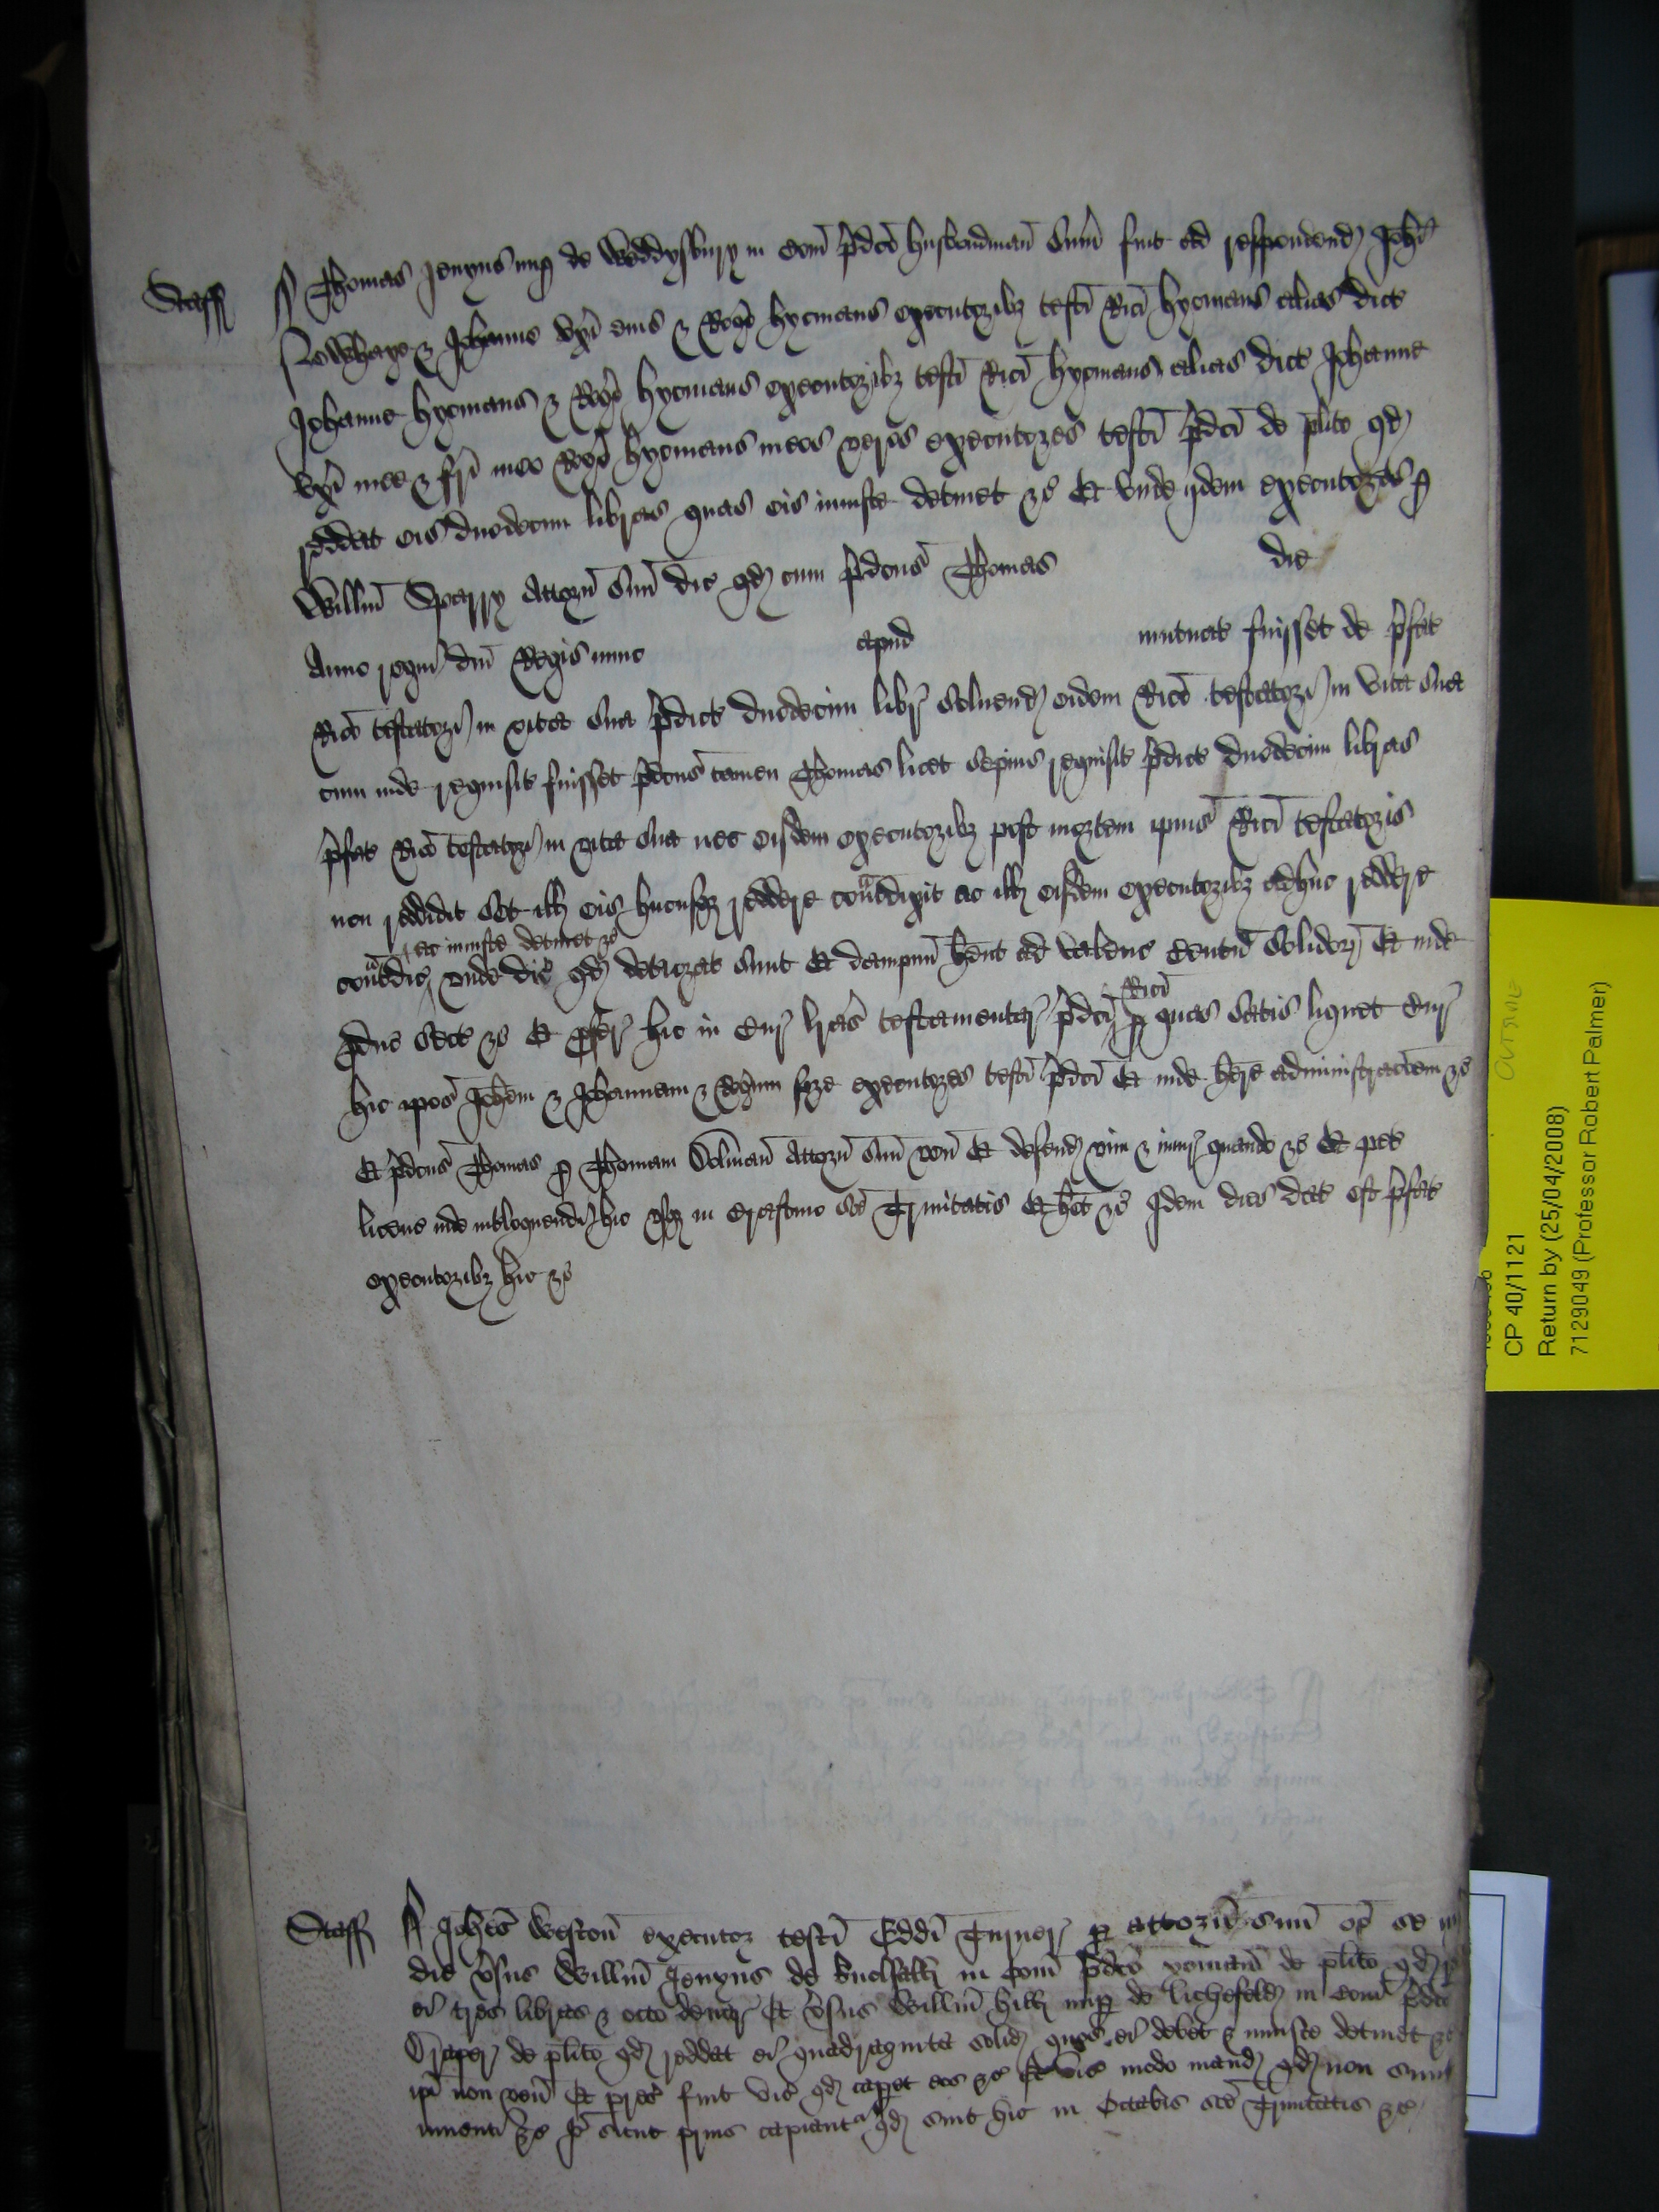 Staff Thomas Jenyns nup de Weddysbury in Com pdco husbondman Sum fuit ad respondend Johi
& Johanne uxi eius & Rogo hycmans executoribz testi Rici hycmans alias dict
Johanne hycmans & Rogo hycmans executoribz testi Rici hycmans alias dict Johanne
uxi mee & fri meo Rogo hycmans meos veros executores testi pdci de plito qd
reddat eis duodecim libras quas eis iniuste detinet &c Et unde ijdem executores p
Willm Sparry Attorn suu dic qd cum pdcus Thomas die
Anno regni dni Regis nunc apud mutuat fuisset de pfat
Rico testatori in vita sua pdict duodecim libr solvend eidem Rico testatori in vita sua
cum inde requisit fuisset pdcus tamen Thomas licet sepius requisit pdict duodecim libras
pfat Rico testatori in vita sua nec eisdem executoribz post mortem ipius Rici testatoris
non reddidit set ill eis hucusqz reddere contdixit ac ill eisdem executoribz adhuc reddere
contdic ac iniuste detinet &c unde dic qd deteriorat sunt Et dampnu hent ad valenc Centu Solidor Et inde
pduc sect &c Et pfer hic in Cur lras testamentar pdci Rici p quas satis liquet Cur
hic ipos Johem & Johannam & Rogum fore executores testi pdci Et inde here administracoem &c
Et pdcus Thomas p Thomam Solman Attorn suu ven Et defend vim & iniur quando &c Et pet
licenc inde intloquendi hic usqz in Crastino sce Trinitatis Et het &c Idem dies dat est pfat
executoribz hic &c
Staff Johes Weston executor testi Eddi Turner p attorn suu op se iiij
die vsus Willm Jenyns de in Com pdco yoman de plito qd
ei tres libras & octo denar Et vsus Willm hill nup de lichefeld in Com pdco
Draper de plito qd reddat ei quadraginta solid quos ei debet & iniuste detinet &c
ipi non ven Et prec fuit vic qd capet eos &c Et vic modo mand qd non sunt
inventi &c Io sicut prius capiant qd sint hic in Octabis sce Trinitatis &c
CP 40/1121
Return by (25/04/2008)
7129049 (Professor Robert Palmer)